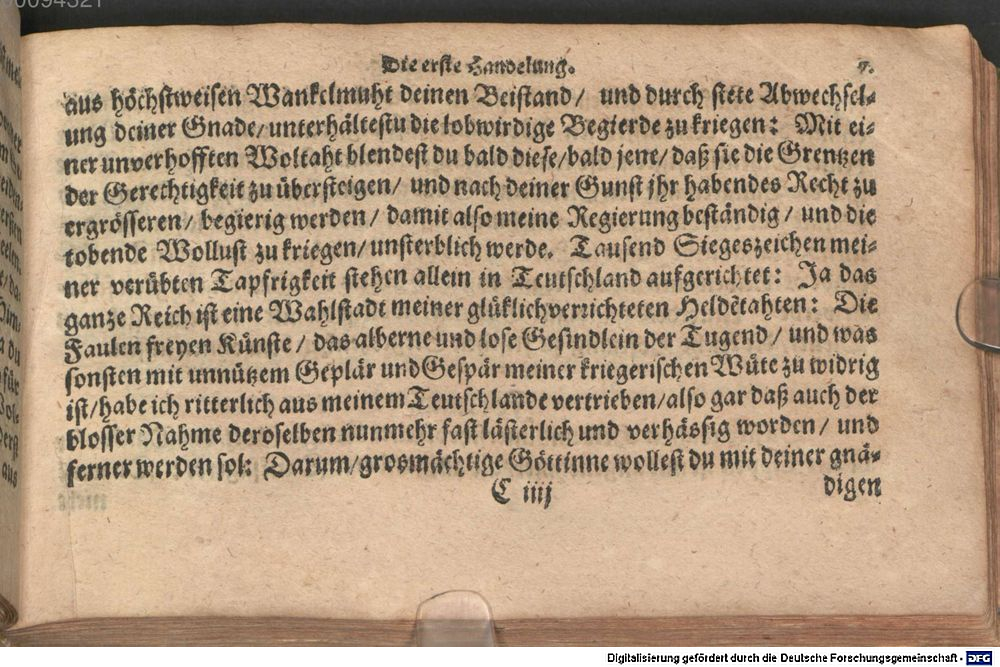 00094521
Die erste Handelung.
aus höchstweisen Wankelmuht deinen Beistand/ und durch stete Abwechsel-
ung deiner Gnade/ unterhältestu die lobwirdige Begierde zu kriegen: Mit ei-
ner unverhofften Woltaht blendest du bald diese/ bald jene/ daß sie die Grentzen
der Gerechtigkeit zu übersteigen/ und nach deiner Gunst jhr habendes Recht zu
ergrösseren/ begierig werden/ damit also meine Regierung beständig/ und die
tobende Wollust zu kriegen/ unsterblich werde. Tausend Siegeszeichen mei-
ner verübten Tapfrigkeit stehen allein in Teutschland aufgerichtet: Ja das
ganze Reich ist eine Wahlstadt meiner glüklich verrichteten Heldẽtahten: Die
Faulen freyen Künste/ das alberne und lose Gesindlein der Tugend/ und was
sonsten mit unnützem Geplär und Gespär meiner kriegerischen Wüte zu widrig
ist/ habe ich ritterlich aus meinem Teutschlande vertrieben/ also gar daß auch der
blosser Nahme deroselben nunmehr fast lästerlich und verhässig worden/ und
ferner werden sol: Darum/ grosmächtige Göttinne wollest du mit deiner gnä-
C iiij digen
Digitalisierung gefördert durch die Deutsche Forschungsgemeinschaft - DFG